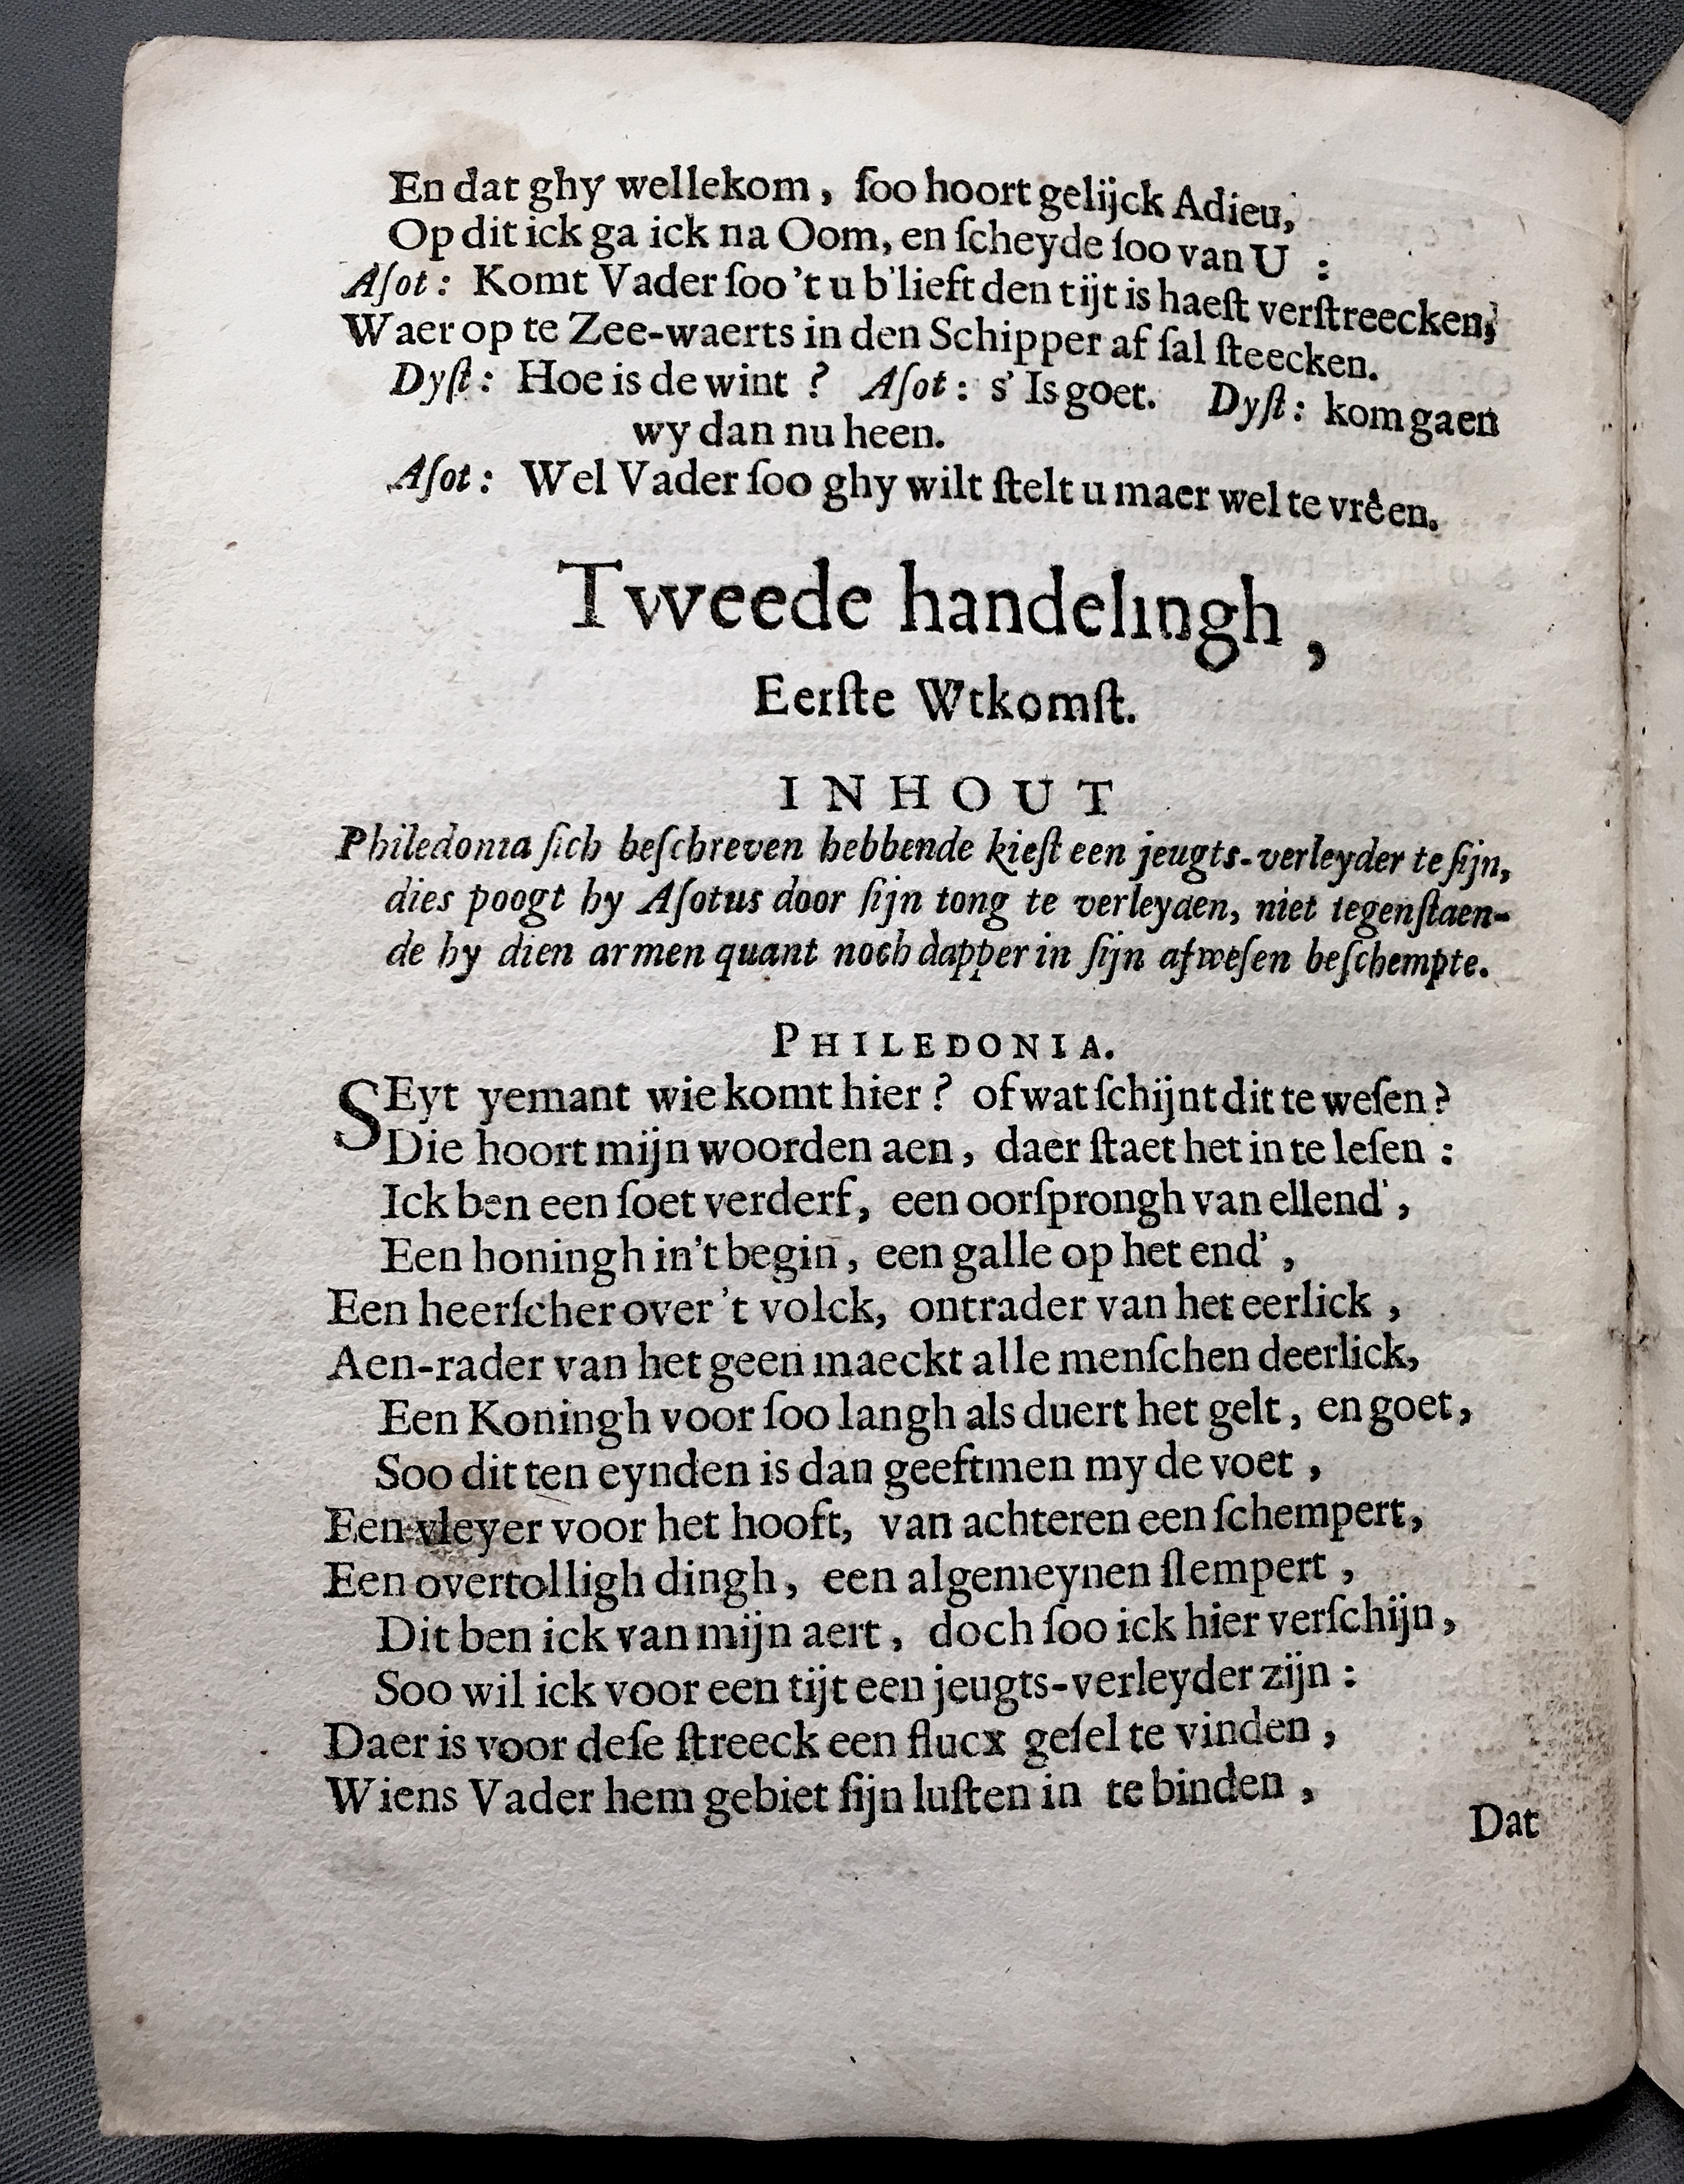 En dat ghy wellekom, ſoo hoort gelijck Adieu,
Op dit ick ga ick na Oom, en ſcheyde ſoo van U :
Aſot: Komt Vader ſoo 't u b'lieft den tijt is haeſt verſtreecken,
Waer op te Zee-waerts in den Schipper af ſal ſteecken.
Dyſt: Hoe is de wint ? Aſot: s' Is goet. Dyſt: kom gaen
wy dan nu heen.
Aſot: Wel Vader ſoo ghy wilt ſtelt u maer wel te vrêen.
Tweede handelingh,
Eerſte Wtkomſt.
INHOUT
Philedonia ſich beſchreven hebbende kieſt een jeugts-verleyder te ſijn,
dies poogt hy Aſotus door ſijn tong te verleyden, niet tegenſtaen-
de hy dien armen quant noch dapper in ſijn afweſen beſchempte.
PHILEDONIA.
SEyt yemant wie komt hier ? of wat ſchijnt dit te weſen ?
Die hoort mijn woorden aen, daer ſtaet het in te leſen :
Ick ben een ſoet verderf, een oorſprongh van ellend',
Een honingh in't begin, een galle op het end',
Een heerſcher over 't volck, ontrader van het eerlick,
Aen-rader van het geen maeckt alle menſchen deerlick,
Een Koningh voor ſoo langh als duert het gelt, en goet,
Soo dit ten eynden is dan geeftmen my de voet,
Een vleyer voor het hooft, van achteren een ſchempert,
Een overtolligh dingh, een algemeynen ſlempert,
Dit ben ick van mijn aert, doch ſoo ick hier verſchijn,
Soo wil ick voor een tijt een jeugts-verleyder zijn :
Daer is voor deſe ſtreeck een flucx geſel te vinden,
Wiens Vader hem gebiet ſijn luſten in te binden,
Dat